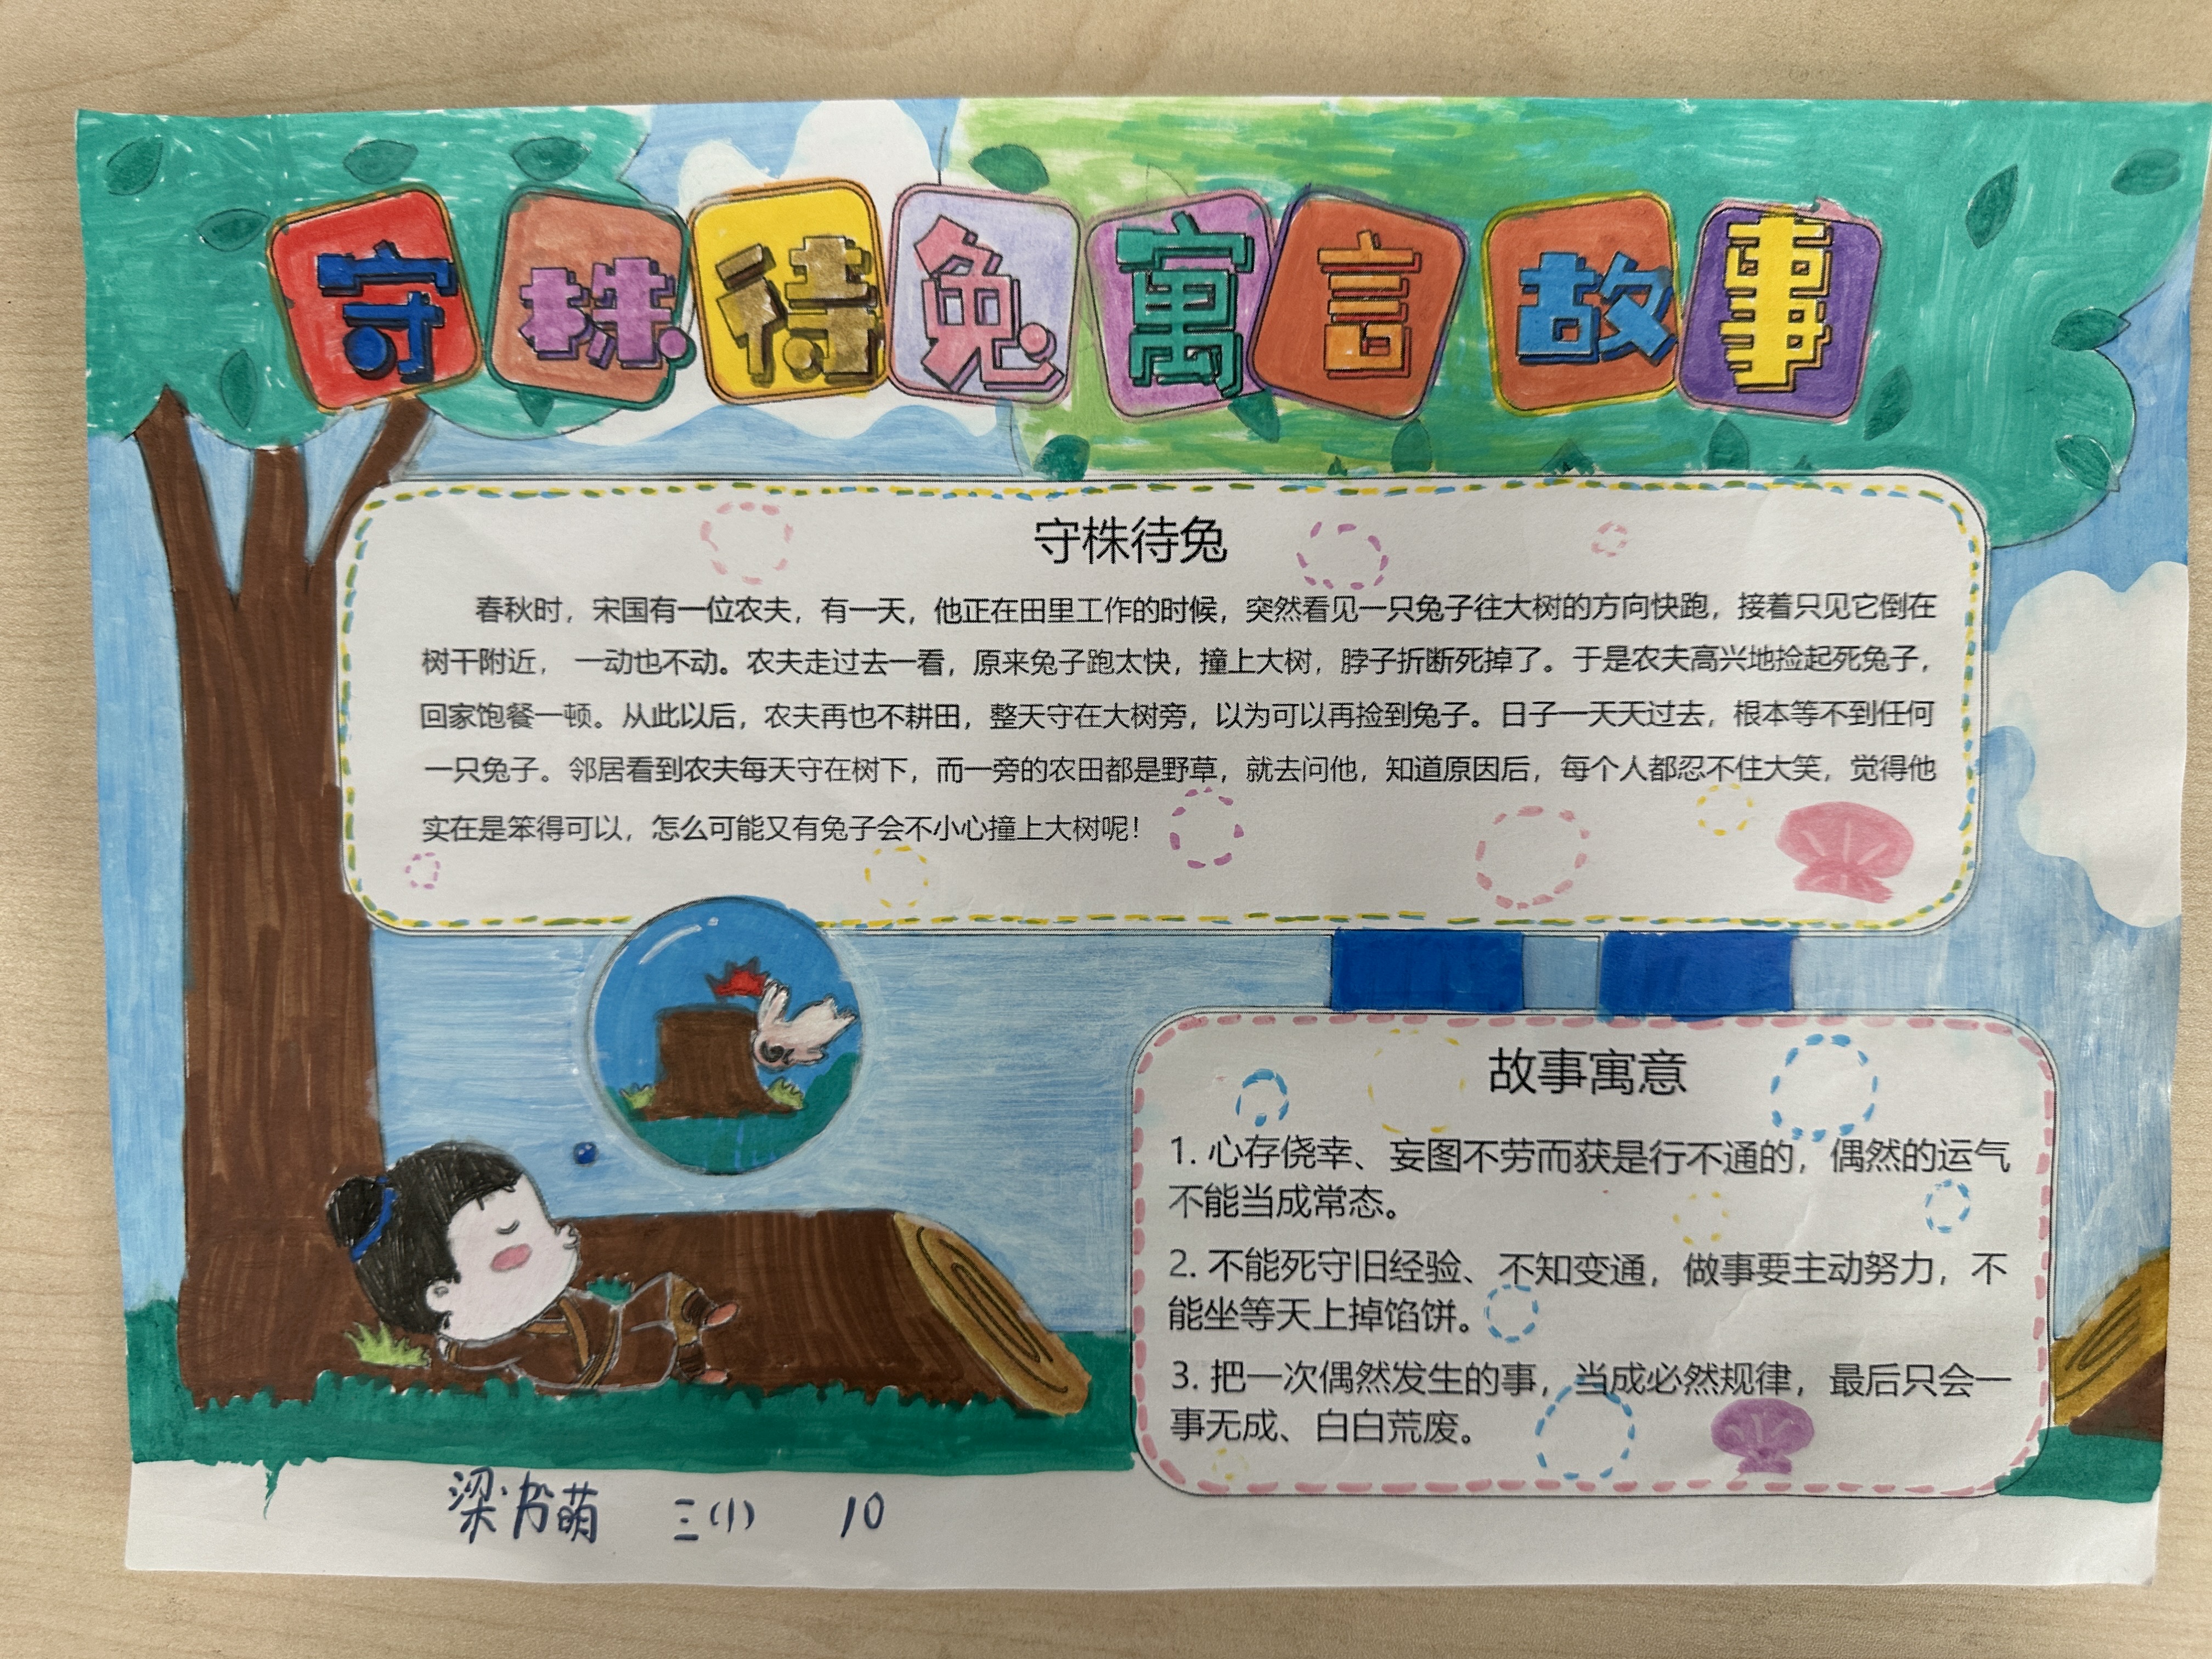 守株待兔寓言故事
守株待兔
春秋时，宋国有一位农夫，有一天，他正在田里工作的时候，突然看见一只兔子往大树的方向快跑，接着只见它倒在
树干附近， 一动也不动。农夫走过去一看，原来兔子跑太快，撞上大树，脖子折断死掉了。于是农夫高兴地捡起死兔子，
回家饱餐一顿。从此以后，农夫再也不耕田，整天守在大树旁，以为可以再捡到兔子。日子一天天过去，根本等不到任何
一只兔子。邻居看到农夫每天守在树下，而一旁的农田都是野草，就去问他，知道原因后，每个人都忍不住大笑，觉得他
实在是笨得可以，怎么可能又有兔子会不小心撞上大树呢！
故事寓意
1. 心存侥幸、妄图不劳而获是行不通的，偶然的运气
不能当成常态。
2. 不能死守旧经验、不知变通，做事要主动努力，不
能坐等天上掉馅饼。
3. 把一次偶然发生的事，当成必然规律，最后只会一
事无成、白白荒废。
梁书萌 三(1) 10